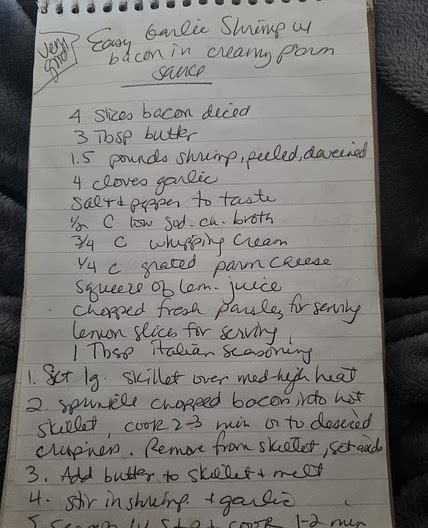 Very good
Easy Garlic Shrimp w
bacon in creamy parm
sauce
4 slices bacon diced
3 Tbsp butter
1.5 pounds shrimp, peeled, deveined
4 cloves garlic
Salt & pepper to taste
1/2 C low sod. ch. broth
3/4 C whipping cream
1/4 C grated parm cheese
Squeeze of lem. juice
Chopped fresh parsley for serving
lemon slices for serving
1 Tbsp italian seasoning
1. Set lg. skillet over med-high heat
2. sprinkle chopped bacon into hot
skillet, cook 2-3 min or to desired
crispiness. Remove from skillet, set aside
3. Add butter to skillet + melt
4. stir in shrimp + garlic
5 season w S + P + cook 1-2 min